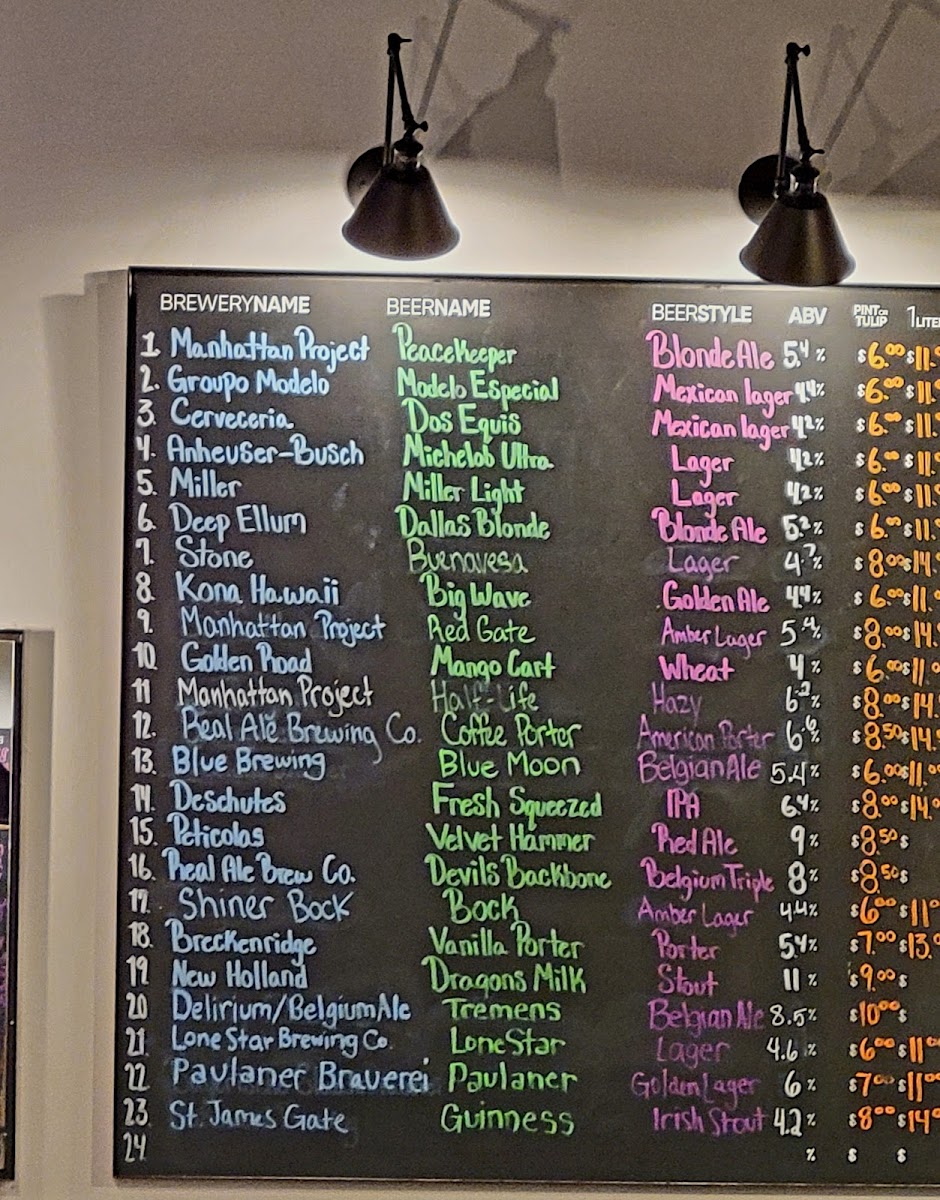 BREWERYNAME BEERNAME BEERSTYLE ABV PINT OR TULIP 1LITE
1. Manhattan Project Peacekeeper Blonde Ale 5.4 % $6.00 $11.
2. Groupo Modelo Modelo Especial Mexican lager 4.4% $6.00 $11.
3. Cerveceria Dos Equis Mexican lager 4.2% $6.00 $11.
4. Anheuser-Busch Michelob Ultra Lager 4.2% $6.00 $11.
5. Miller Miller Light Lager 4.2% $6.00 $11.
6. Deep Ellum Dallas Blonde Blonde Ale 5.2% $6.00 $11.
7. Stone Buenavesa Lager 4.7% $8.00 $14.
8. Kona Hawaii Big Wave Golden Ale 4.4% $6.00 $11.
9. Manhattan Project Red Gate Amber Lager 5.4% $8.00 $14.
10. Golden Road Mango Cart Wheat 4% $6.00 $11.
11 Manhattan Project Half-Life Hazy 6.2% $8.00 $14.
12. Real Ale Brewing Co. Coffee Porter American Porter 6.6% $8.50 $14.
13. Blue Brewing Blue Moon Belgian Ale 5.4% $6.00 $11.
14. Deschutes Fresh Squeezed IPA 6.4% $8.00 $14.
15. Peticolas Velvet Hammer Red Ale 9% $8.50 $
16. Real Ale Brew Co. Devils Backbone Belgium Triple 8% $8.50 $
17. Shiner Bock Bock Amber Lager 4.4% $6.00 $11
18. Breckenridge Vanilla Porter Porter 5.4% $7.00 $13.
19. New Holland Dragons Milk Stout 11% $9.00 $
20 Delirium/Belgium Ale Tremens Belgian Ale 8.5% $10.00 $
21. Lone Star Brewing Co. Lone Star Lager 4.6% $6.00 $11
22 Paulaner Brauerei Paulaner Golden Lager 6% $7.00 $11
23. St. James Gate Guinness Irish Stout 4.2% $8.00 $14
24. % $ $